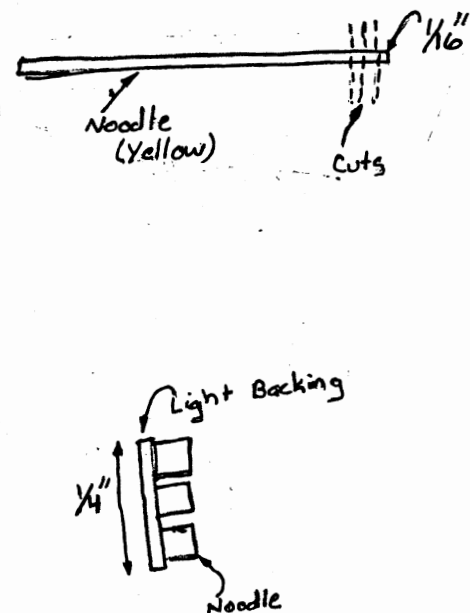 1/16"
Noodle
(Yellow)
Cuts
Light Backing
1/4"
Noodle